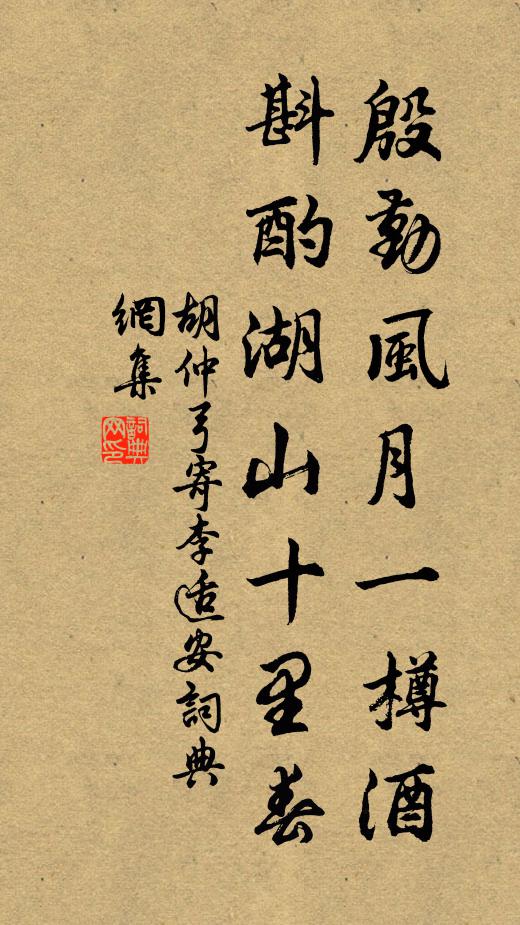 殷勤風月一樽酒
斟酌湖山十里春
胡仲弓寄李适安詞典
網集
詞典
网印